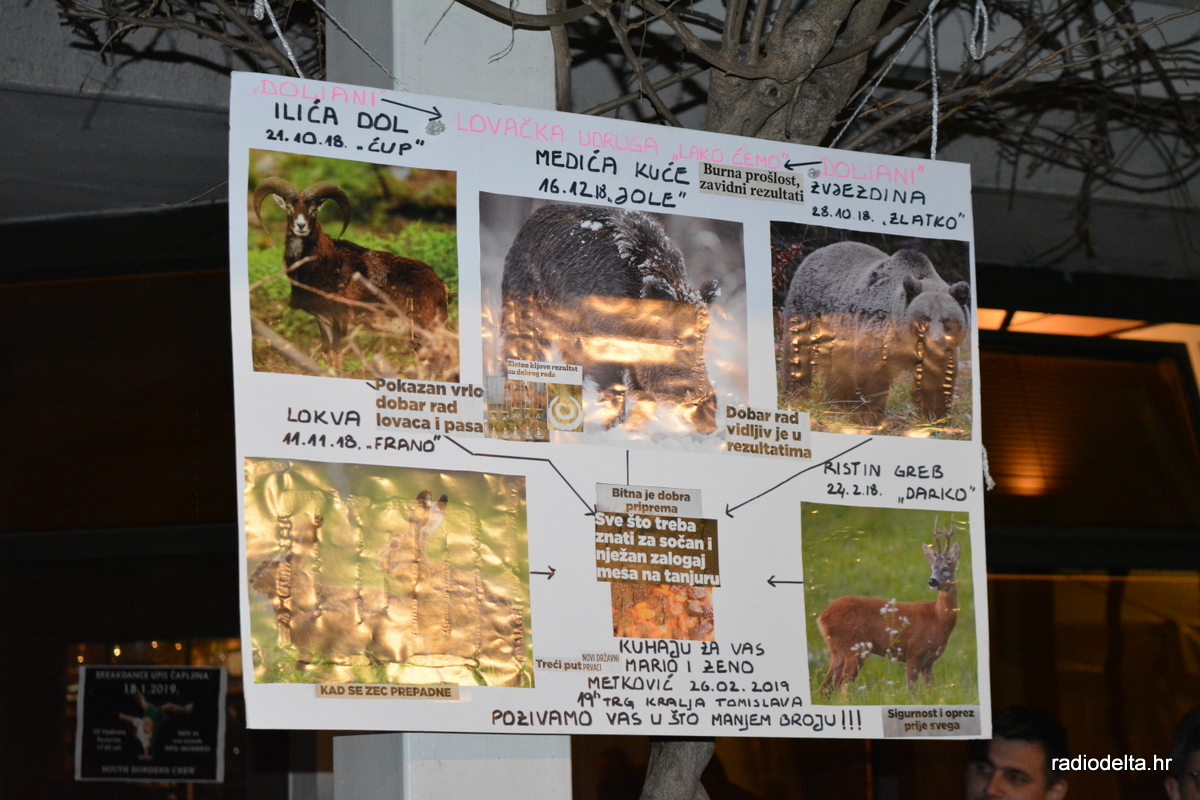 „DOLJANI"
ILIĆA DOL
21.10.18. „ĆUP"
LOVAČKA UDRUGA „LAKO ĆEMO"
„DOLJANI"
MEDIĆA KUĆE
16.12.18. „JOLE"
Burna prošlost,
zavidni rezultati
ZVJEZDINA
28.10.18. „ZLATKO"
Zlatne kljove rezultat
su dobrog rada
Pokazan vrlo
dobar rad
lovaca i pasa
Dobar rad
vidljiv je u
rezultatima
LOKVA
11.11.18. „FRANO"
RISTIN GREB
24.2.18. „DARKO"
Bitna je dobra
priprema
Sve što treba
znati za sočan i
nježan zalogaj
mesa na tanjuru
KAD SE ZEC PREPADNE
Treći put
NOVI DRŽAVNI
PRVACI
KUHAJU ZA VAS
MARIO I ZENO
METKOVIĆ 26.02.2019
19h TRG KRALJA TOMISLAVA
POZIVAMO VAS U ŠTO MANJEM BROJU!!!
Sigurnost i oprez
prije svega
BREAKDANCE UPIS ČAPLJINA
18.1.2019.
SOUTH BORDERS CREW
radiodelta.hr